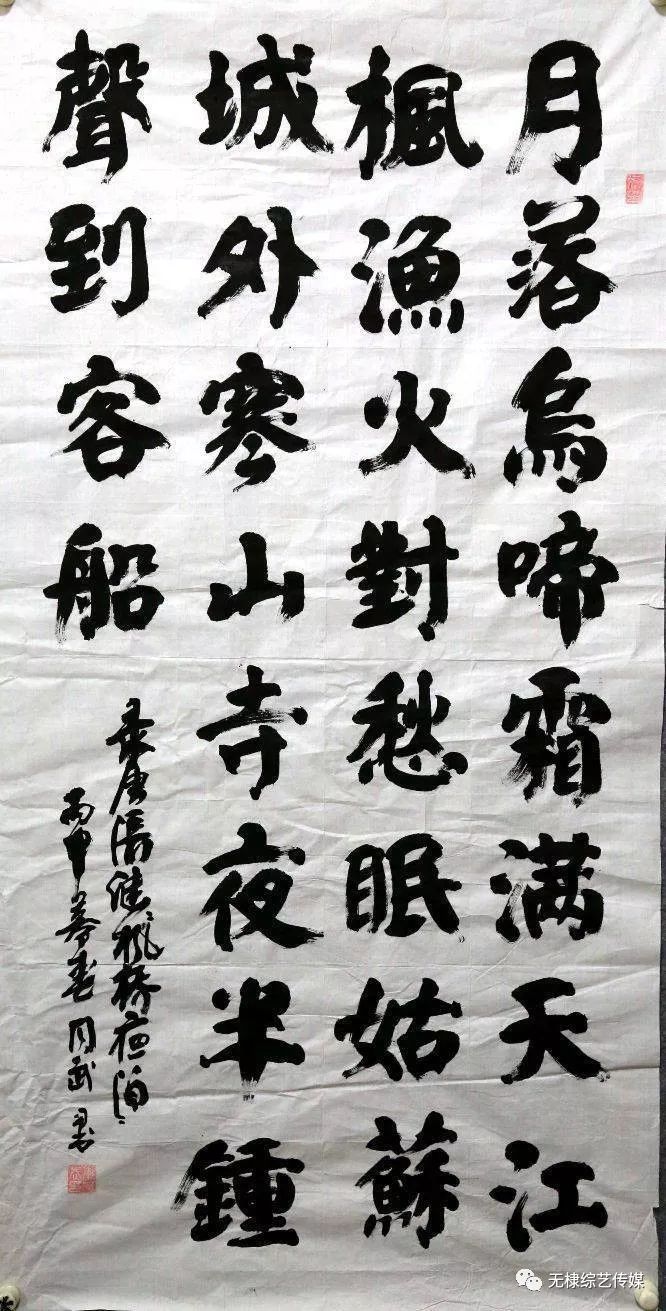 月落烏啼霜满天江
楓漁火對愁眠姑蘇
城外寒山寺夜半鍾
聲到客船
录唐張继枫桥夜泊
丙申暮春
无棣综艺传媒